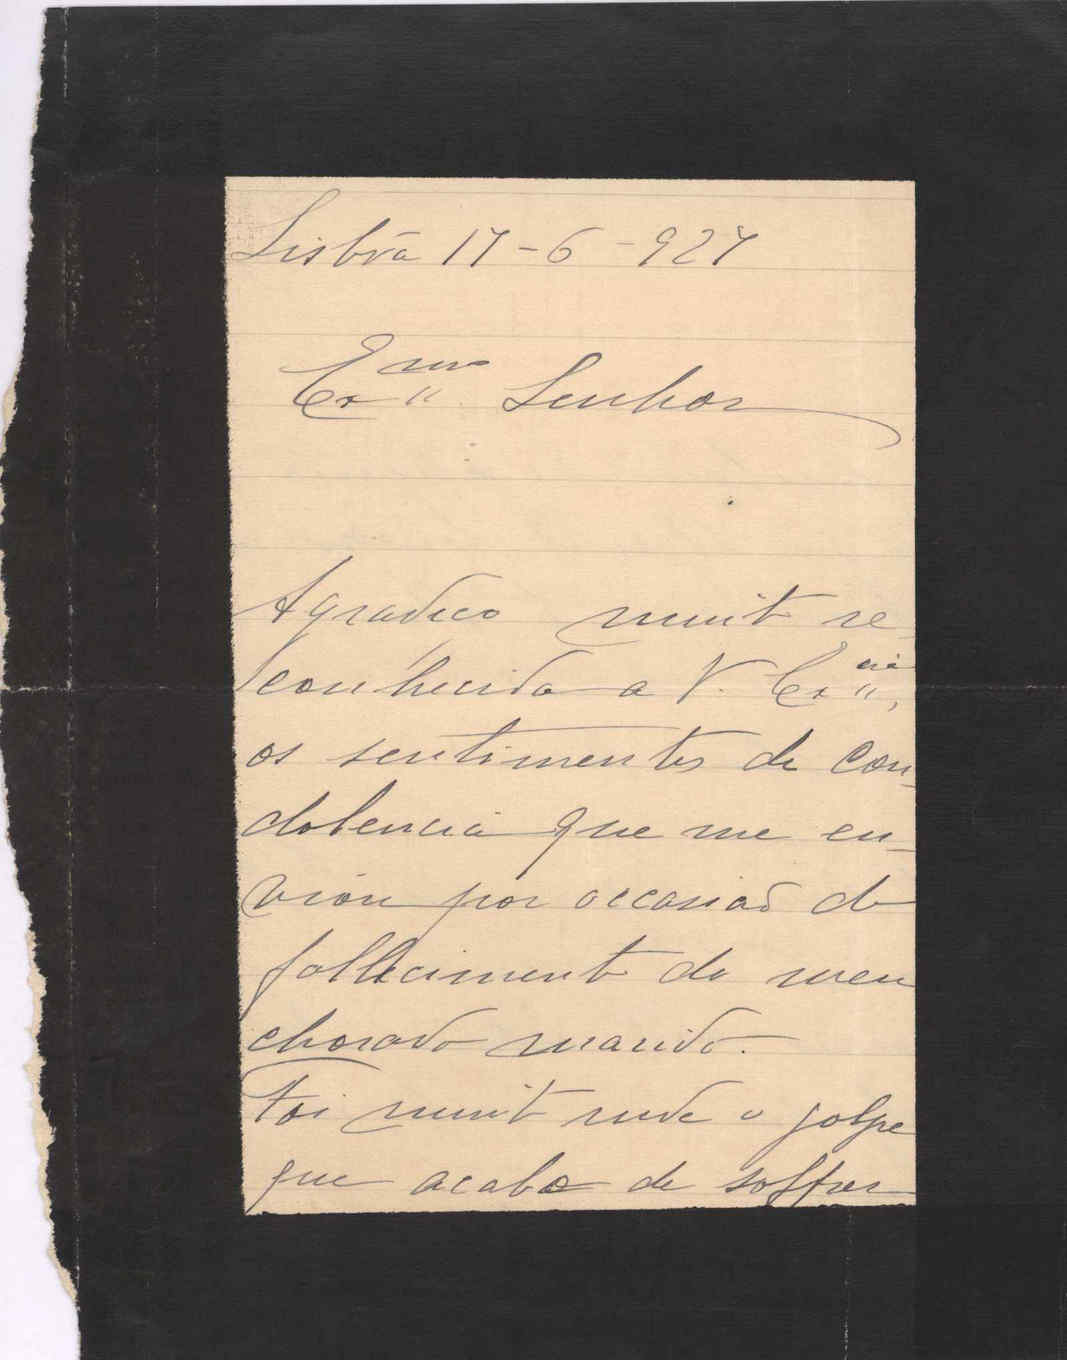 Lisbôa 17-6-927
Exmo Senhor
Agradeço muito re
conhecida a V. Excia,
os sentimentos de con-
dolencia que me en-
viou por occasião do
fallecimento do meu
chorado marido.
Foi muito rude o golpe
que acabo de soffrer